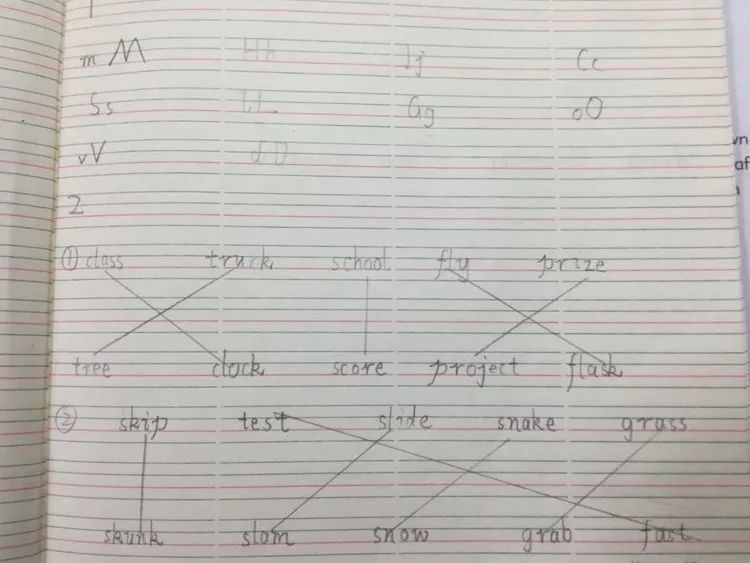 m M Hh Jj Cc
Ss LL Gg o O
v V d D
2
① class truck school fly prize
tree clock score project flask
② skip test slide snake grass
skunk slam snow grab fast
wn
af